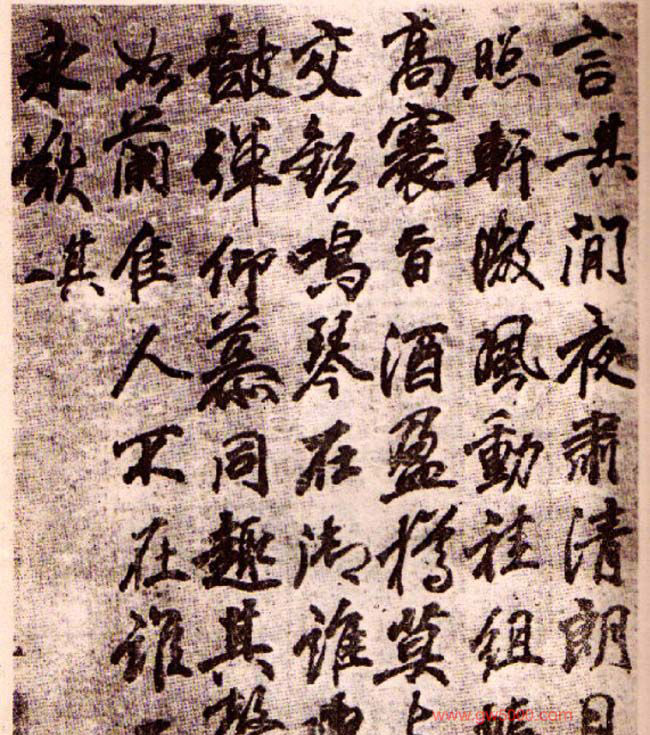 言其一閒夜肅清朗月
照軒微風動袿組帳
高褰旨酒盈樽莫
交歡鳴琴在御誰
鼓彈仰慕同趣其馨
如蘭佳人不在誰
永歎其一
www.gw5000.com